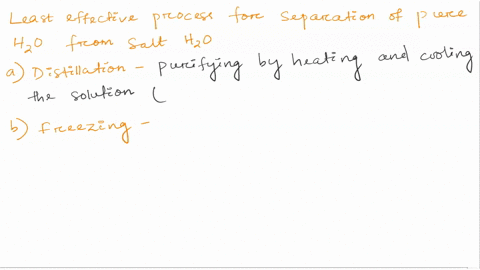 Least effective process for separation of pure
H₂O from salt H₂O
a) Distillation - purifying by heating and cooling
the solution (
b) Freezing -